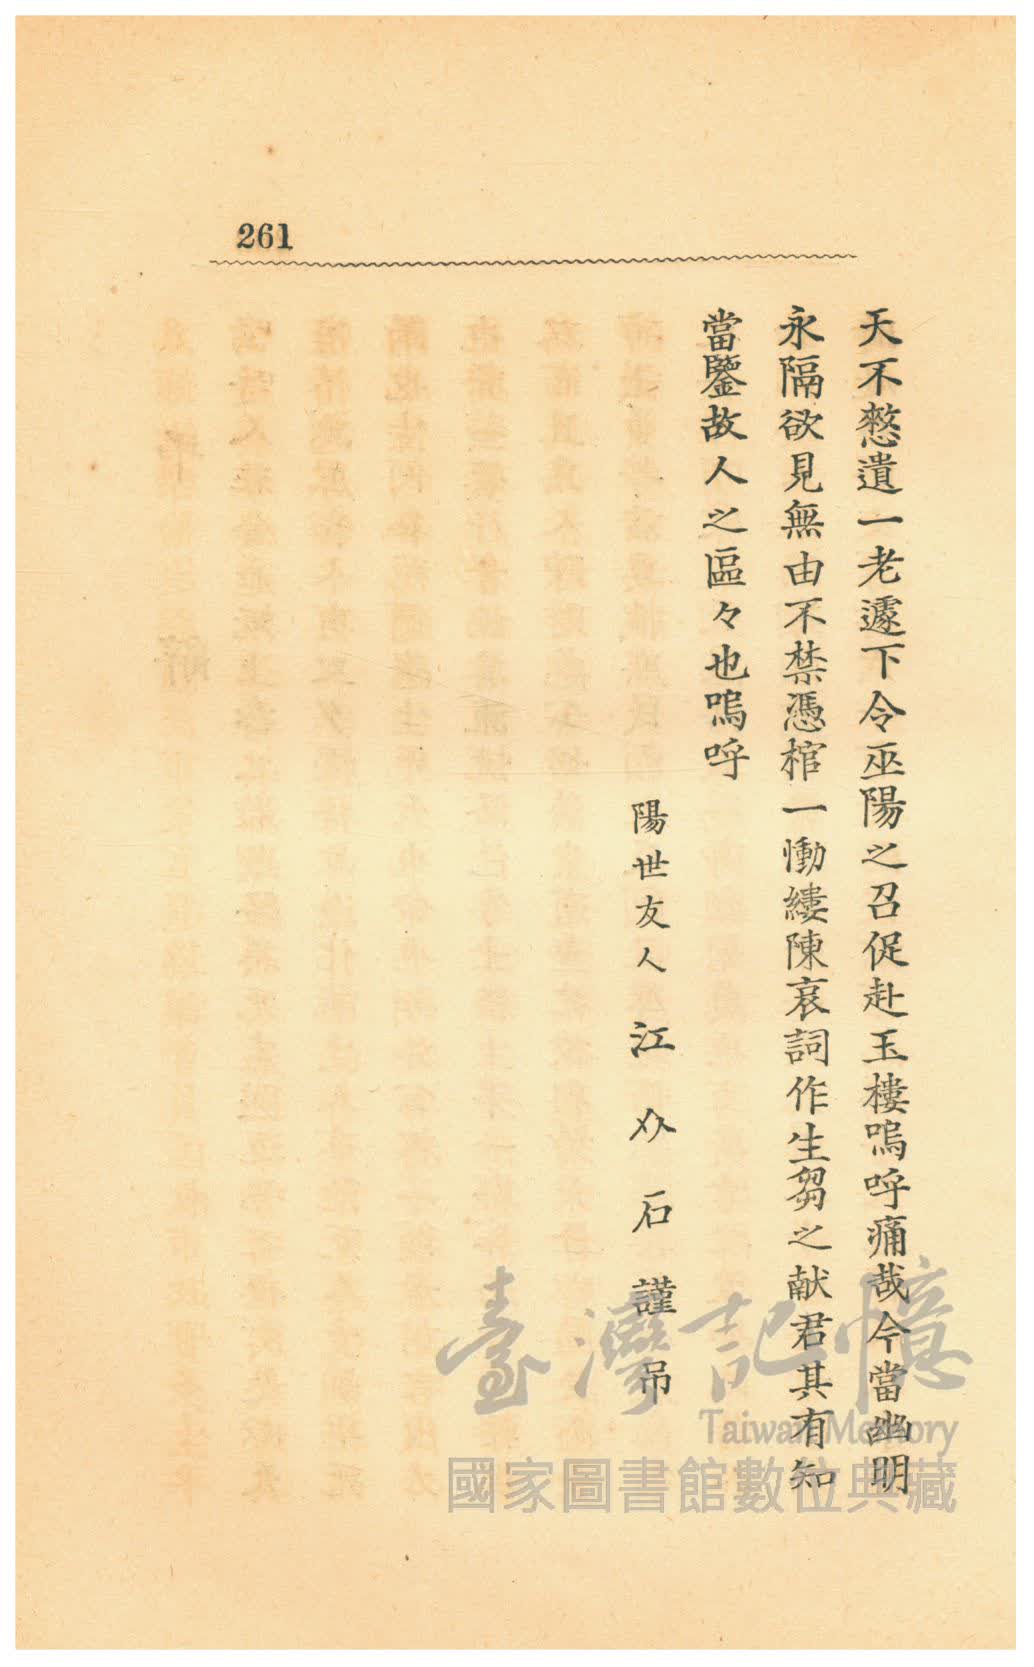 261
天不憖遺一老遽下令巫陽之召促赴玉樓嗚呼痛哉今當幽明
永隔欲見無由不禁憑棺一慟縷陳哀詞作生芻之献君其有知
當鑒故人之區々也嗚呼
陽世友人 江介石謹吊
臺灣記憶
Taiwan Memory
國家圖書館數位典藏